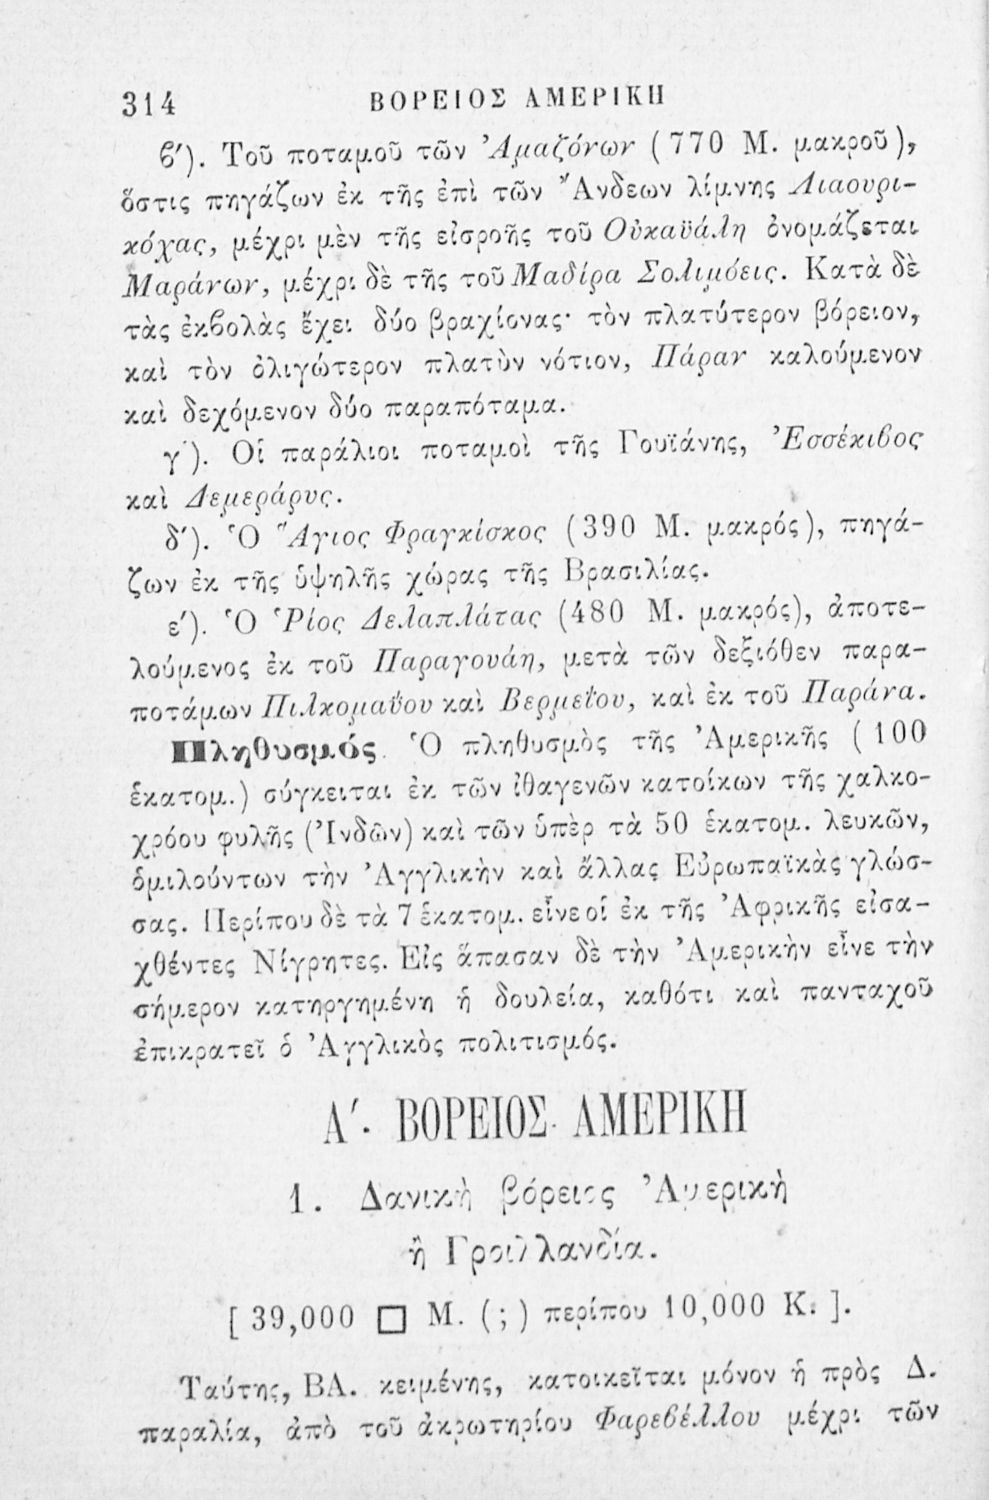 314 ΒΟΡΕΙΟΣ ΑΜΕΡΙΚΗ
ϐ′). Τοῦ ποταμοῦ τῶν Ἀμαζόνων (770 Μ. μακροῦ),
ὅστις πηγάζων ἐκ τῆς ἐπὶ τῶν Ἄνδεων λίμνης Λιαουρι-
κόχας, μέχρι μὲν τῆς εἰσροῆς τοῦ Οὐκαϋάλη ὀνομάζεται
Μαράνων, μέχρι δὲ τῆς τοῦ Μαδίρα Σολιμόεις. Κατὰ δὲ
τὰς ἐκϐολὰς ἔχει δύο βραχίονας· τὸν πλατύτερον βόρειον,
καὶ τὸν ὀλιγώτερον πλατὺν νότιον, Πάραν καλούμενον
καὶ δεχόμενον δύο παραπόταμα.
γ′). Οἱ παράλιοι ποταμοὶ τῆς Γουϊάνης, Ἐσσέκιϐος
καὶ Δεμεράρυς.
δ′). Ὁ Ἅγιος Φραγκίσκος (390 Μ. μακρός), πηγά-
ζων ἐκ τῆς ὑψηλῆς χώρας τῆς Βρασιλίας.
ε′). Ὁ Ῥίος Δελαπλάτας (480 Μ. μακρός), ἀποτε-
λούμενος ἐκ τοῦ Παραγουάη, μετὰ τῶν δεξιόθεν παρα-
ποτάμων Πιλκομαΰου καὶ Βερμεΐου, καὶ ἐκ τοῦ Παράνα.
Πληθυσμός. Ὁ πληθυσμὸς τῆς Ἀμερικῆς (100
ἑκατομ.) σύγκειται ἐκ τῶν ἰθαγενῶν κατοίκων τῆς χαλκο-
χρόου φυλῆς (Ἰνδῶν) καὶ τῶν ὑπὲρ τὰ 50 ἑκατομ. λευκῶν,
ὁμιλούντων τὴν Ἀγγλικὴν καὶ ἄλλας Εὐρωπαϊκὰς γλώσ-
σας. Περίπου δὲ τὰ 7 ἑκατομ. εἶνε οἱ ἐκ τῆς Ἀφρικῆς εἰσα-
χθέντες Νίγρητες. Εἰς ἅπασαν δὲ τὴν Ἀμερικὴν εἶνε τὴν
σήμερον κατηργημένη ἡ δουλεία, καθότι καὶ πανταχοῦ
ἐπικρατεῖ ὁ Ἀγγλικὸς πολιτισμός.
Α′. ΒΟΡΕΙΟΣ ΑΜΕΡΙΚΗ
1. Δανικὴ βόρειος Ἀμερικὴ
ἢ Γροιλλανδία.
[ 39,000 □ Μ. (;) περίπου 10,000 Κ. ].
Ταύτης, ΒΑ. κειμένης, κατοικεῖται μόνον ἡ πρὸς Δ.
παραλία, ἀπὸ τοῦ ἀκρωτηρίου Φαρεϐέλλου μέχρι τῶν